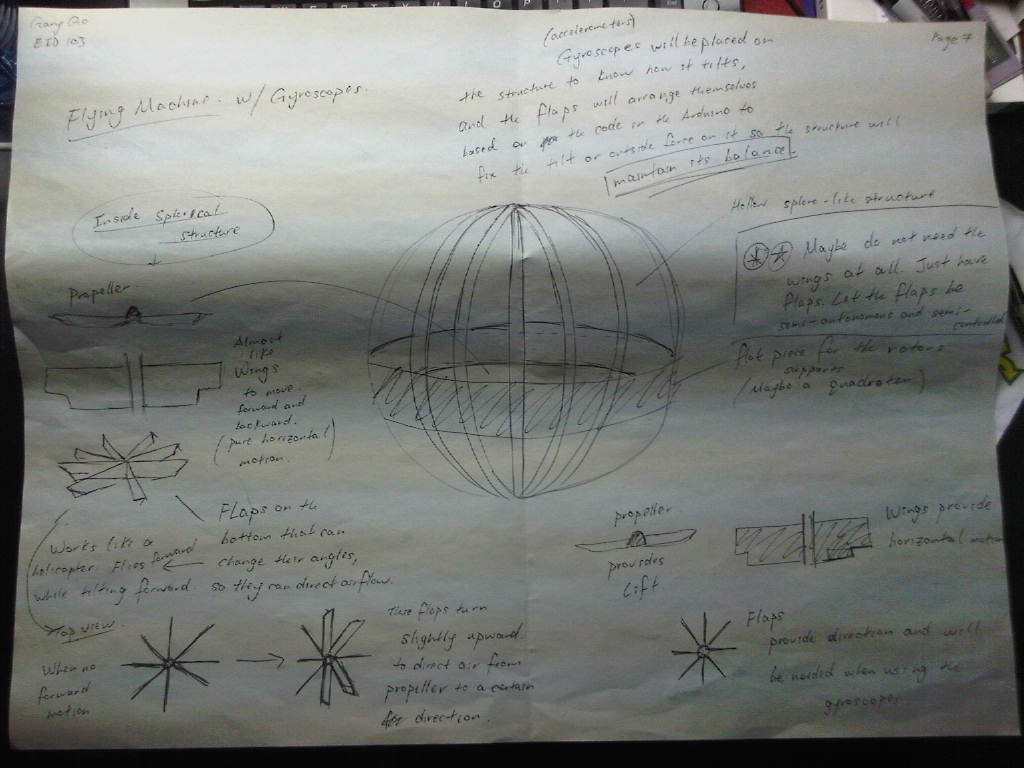 EID 103
Page 7
Flying Machine. w/ Gyroscopes.
(accelerometers)
Gyroscopes will be placed on
the structure to know how it tilts,
and the flaps will arrange themselves
based on the code in the Arduino to
fix the tilt or outside force on it so the structure will
maintain its balance.
Inside Spherical
structure
Propeller.
Almost
like
Wings
to move.
forward and
backward.
(pure horizontal)
motion.
Hollow sphere-like structure
Maybe do not need the
wings at all. Just have
flaps. Let the flaps be
semi-autonomous and semi-
controlled
flat piece for the rotors
supports
(Maybe a quadrotor)
Flaps on the
bottom that can
change their angles,
so they can direct airflow.
Works like a
helicopter. Flies forward
while tilting forward.
Top view.
When no
forward
motion
These flaps turn
slightly upward
to direct air from
propeller to a certain
direction.
propeller
provides
Lift.
Wings provide
horizontal motion
Flaps
provide direction and will
be needed when using the
gyroscopes